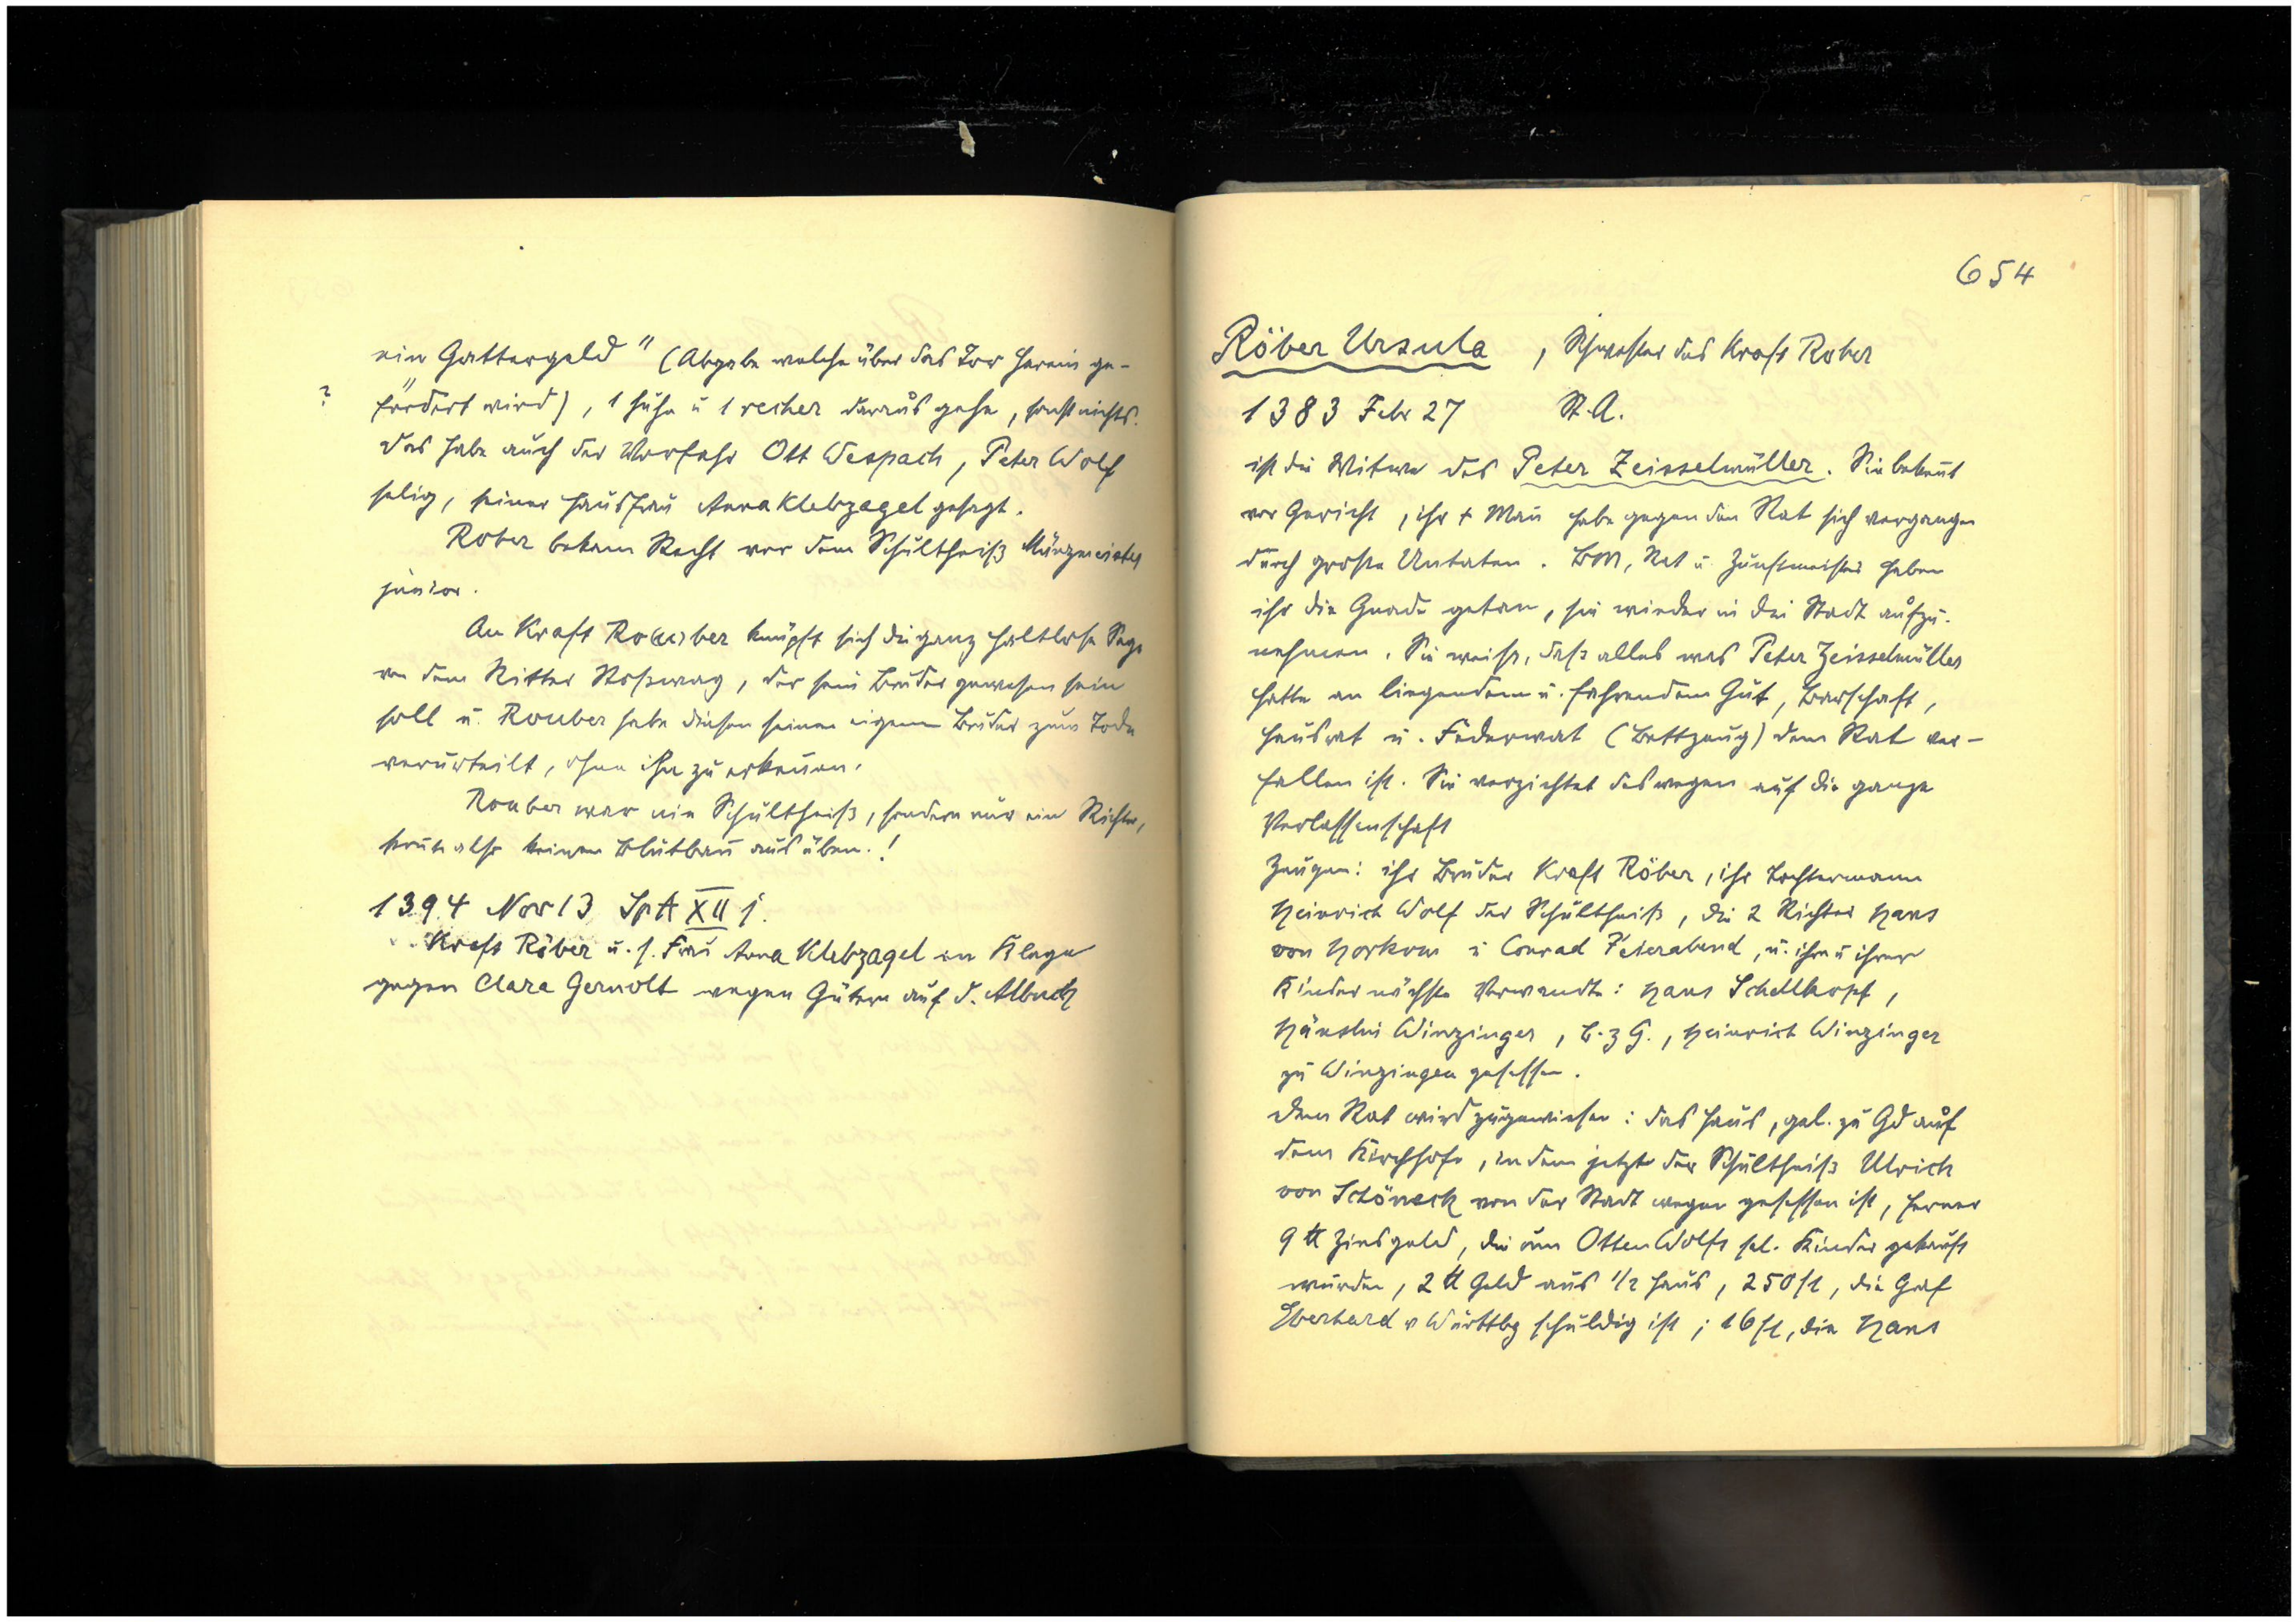 ein Gattergeld" (Abgabe welche über das Tor herein ge-
? fördert wird), 1 Huhn u 1 recher daraus gehe, sonst nichts.
Das habe auch der Vorfahr Ott Wespach, Peter Wolf
selig, seiner Hausfrau Anna Klebzagel gesagt.
Rober bekam Recht vor dem Schultheiß Münzmeister
junior.
An Kraft Ro(u)ber knüpft sich die ganz haltlose Sage
von dem Ritter Roßwag, der sein Bruder gewesen sein
soll u. Rouber habe diesen seinen eigenen Bruder zum Tode
verurteilt, ohne ihn zu erkennen.
Rouber war nie Schultheiß, sondern nur ein Richter,
konnte also keinen Blutbann ausüben.!
1394 Nov 13 SpA XII j.
Kraft Röber u. s. Frau Anna Klebzagel in Klage
gegen Clara Gernolt wegen Gütern auf d. Albuch
654
Röber Ursula , Schwester des Kraft Rober
1383 Febr 27 St.A.
ist die Witwe des Peter Zeisselmüller. Sie bekennt
vor Gericht, ihr + Mann habe gegen den Rat sich vergangen
durch große Untaten. BM, Rat u. Zunftmeister haben
ihr die Gnade getan, sie wieder in die Stadt aufzu-
nehmen. Sie weiß, daß alles was Peter Zeisselmüller
hatte an liegendem u. fahrendem Gut, Barschaft,
Hausrat u. Federwat (Bettzeug) dem Rat ver-
fallen ist. Sie verzichtet deswegen auf die ganze
Verlassenschaft
Zeugen: ihr Bruder Kraft Röber, ihr Tochtermann
Heinrich Wolf der Schultheiß, die 2 Richter Hans
von Horkom u Conrad Feierabend, u. ihre u ihrer
Kinder nächste Verwandte: Hans Schellkopf,
Hänslin Winzinger, B. z G., Heinrich Winzinger
zu Winzingen gesessen.
Dem Rat wird zugewiesen: das Haus, gel. zu Gd auf
dem Kirchhofe, in dem jetzt der Schultheiß Ulrich
von Schöneck von der Stadt wegen gesessen ist, ferner
9 ℔ Zinsgeld, die um Otten Wolfs sel. Kinder gekauft
wurden, 2 ℔ Geld aus 1/2 Haus, 250 fl, die Graf
Eberhard v Württbg schuldig ist; 16 fl, die Hans